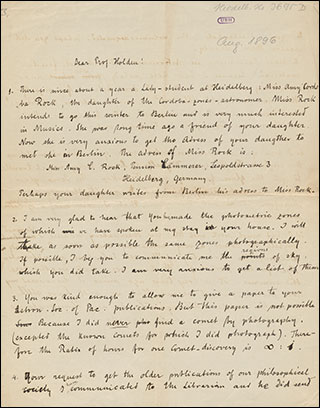 Aug. 1896
Dear Prof. Holden!
1. There is since about a year a Lady-student at Heidelberg: Miss Amy Cordo
ba Rock, the daughter of the Cordoba-zones-astronomer. Miss Rock
intend to go this winter to Berlin and is very much interested
in Musics. She was long time ago a friend of your daughter
Now she is very anxious to get the Adress of your daughter to
met she in Berlin. The adress of Miss Rock is:
Miss Amy C. Rock, Pension Lammerer Leopoldstrasse 3
Heidelberg, Germany
Perhaps your daughter writes from Berlin his adress to Miss Rock.
2. I am very glad to hear that you made the photometric zones
of which we have spoken at my stay in your house. I will
make as soon as possible the same zones photographically.
If possible, I beg you to communicate me the regions of sky
which you did take. I am very anxious to get a list of them
3. You was kind enough to allow me to give a paper to your
Astron. Soc. of Pac. publications. But this paper is not possible
Because I did never find a comet by photography
(excepted the known comets for which I did photograph). There-
fore the Ratio of hours for one Comet-discovery is ∞ : 1
4. Your request to get the older publications of our philosophical
society I communicated to the Librarian and he did send